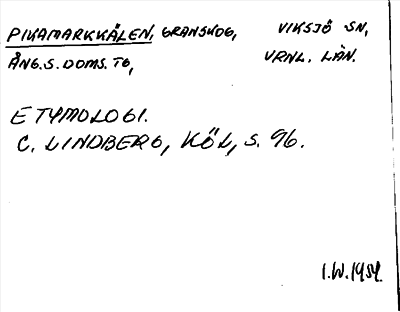 PIKAMARKKÄLEN, GRANSKOG, VIKSJÖ SN,
ÅNG.S.DOMS.TG, VRNL. LÄN.
ETYMOLOGI.
C. LINDBERG, KÖL, S. 96.
I.W.1954.